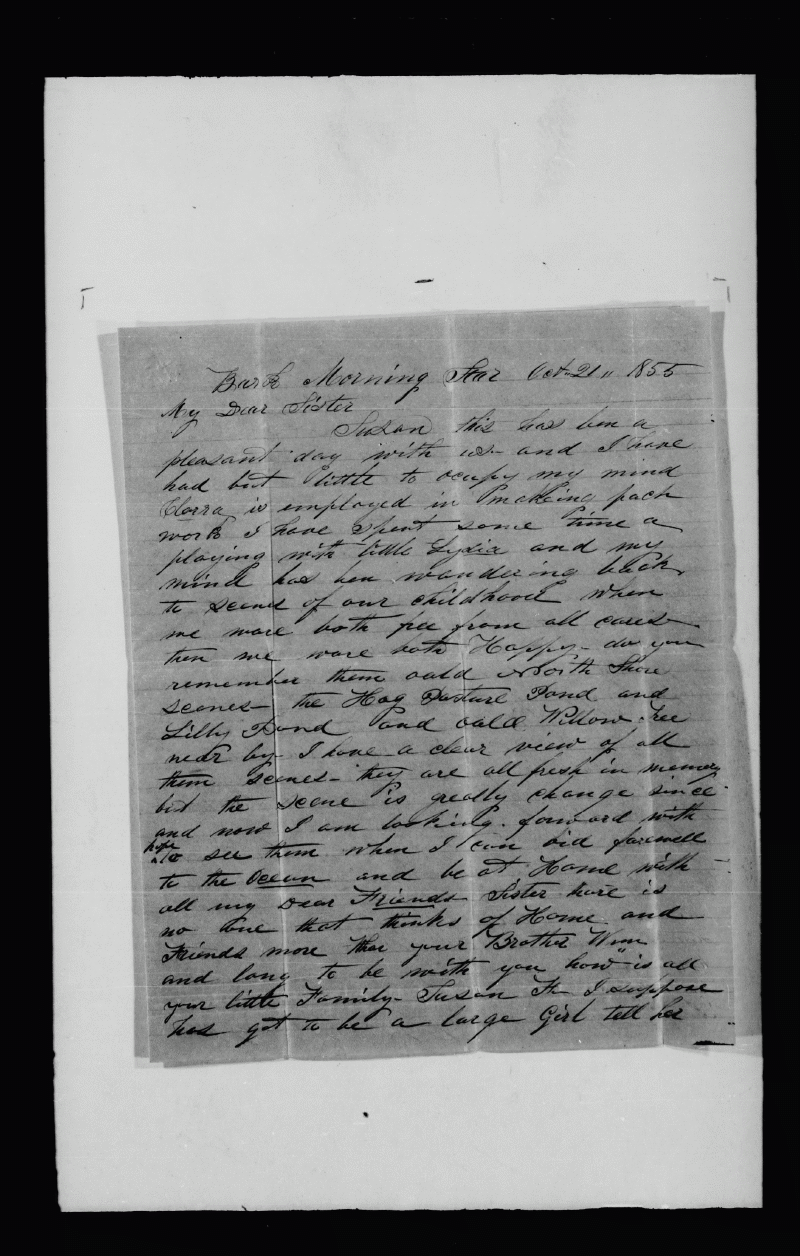 Bark Morning Star Oct 21" 1855
My Dear Sister
Susan this has ben a
pleasant day with us - and I have
had but little to ocupy my mind
Clorra is employed in making pach
work I have spent some time a
playing with little Lydia and my
mind has ben wandering back
to scenes of our childhood when
we ware both free from all cares -
then we ware both Happy - do you
remember them oald North Shore
scenes - the Hog Pasture Pond and
Lilly Pond and oald Willow Tree
near by - I have a clear view of all
them scenes - they are all fresh in memory
but the scene is greatly change since
and now I am looking forward with
hope to see them when I can bid farewell
to the Ocean and be at Home with -
all my Dear Friends Sister thare is
no one that thinks of Home and
Friends more than your Brother Wm
and long to be with you how is all
your little Family - Susan H I suppose
has got to be a large Girl tell her